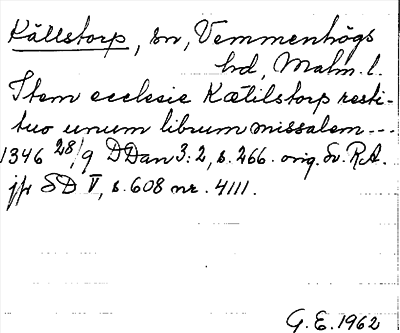 Källstorp, sn, Vemmenhögs
hd, Malm. l.
Item ecclesie Kætilstorp resti-
tuo unum librum missalem ---
1346 28/9 DDan 3:2, s. 266. orig. Sv. R.A.
jfr SD V, s. 608 nr. 4111.
G. E. 1962